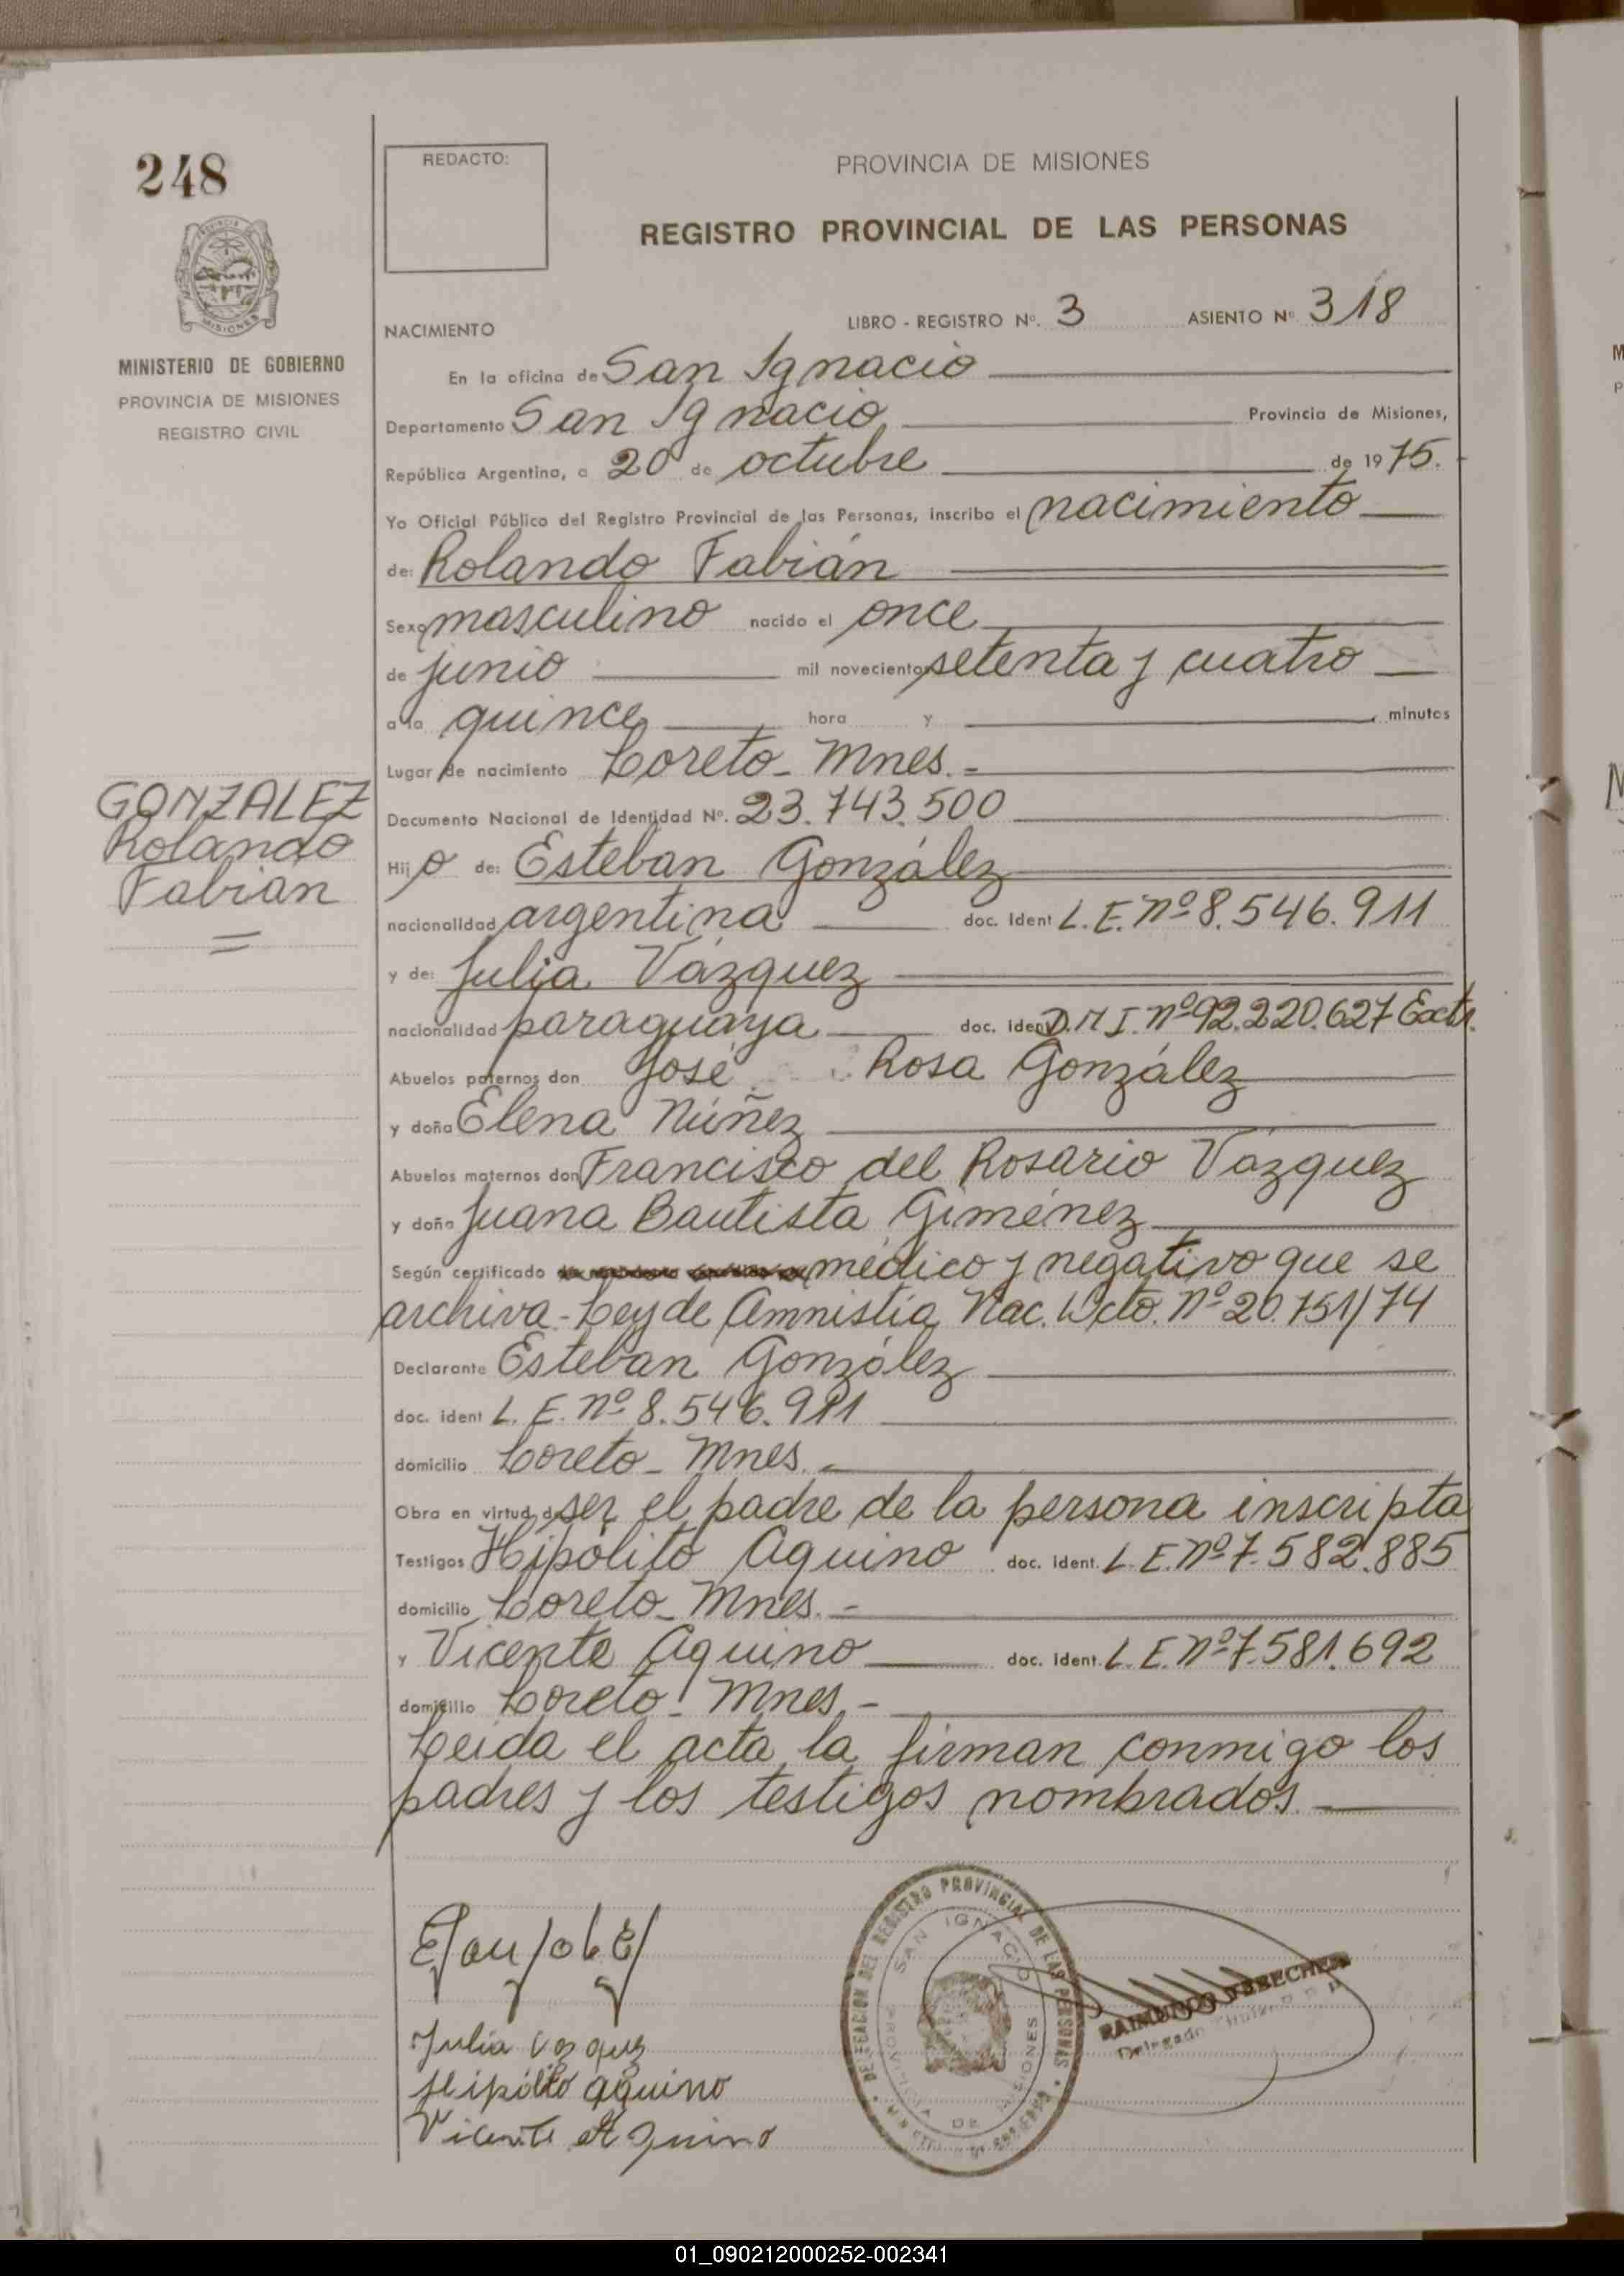 248
REDACTO:
PROVINCIA DE MISIONES
REGISTRO PROVINCIAL DE LAS PERSONAS
MISIONES
MINISTERIO DE GOBIERNO
PROVINCIA DE MISIONES
REGISTRO CIVIL
NACIMIENTO
LIBRO - REGISTRO Nº. 3 ASIENTO Nº 318
En la oficina de San Ignacio
Departamento San Ignacio Provincia de Misiones,
República Argentina, a 20 de octubre de 1975.
Yo Oficial Público del Registro Provincial de las Personas, inscribo el nacimiento
de: Rolando Fabián
Sexo masculino nacido el once
de junio mil novecientos setenta y cuatro
a la quince hora y minutos
Lugar de nacimiento Loreto - Mnes. -
Documento Nacional de Identidad Nº. 23.743.500
GONZALEZ
Rolando
Fabian
Hijo de: Esteban González
nacionalidad argentina doc. ident L.E. Nº 8.546.911
y de: Julia Vázquez
nacionalidad paraguaya doc. ident D.N.I. nº 92.220.627 Extr.
Abuelos paternos don José Rosa González
y doña Elena Núñez
Abuelos maternos don Francisco del Rosario Vázquez
y doña Juana Bautista Giménez
Según certificado médico y negativo que se
archiva - Ley de Amnistía Nac. Dcto. Nº 20.751/74
Declarante Esteban González
doc. ident L. E. nº 8.546.911
domicilio Loreto - Mnes. -
Obra en virtud de ser el padre de la persona inscripta
Testigos Hipólito Aquino doc. ident. L.E. Nº 7.582.885
domicilio Loreto - Mnes. -
y Vicente Aquino doc. ident. L.E. Nº 7.581.692
domicilio Loreto - Mnes. -
Leida el acta la firman conmigo los
padres y los testigos nombrados.
Julia Vasquez
Hipólito Aquino
Vicente Aquino
DELEGACION DEL REGISTRO PROVINCIAL DE LAS PERSONAS
SAN IGNACIO
PROVINCIA DE MISIONES
Delegado Titular
01_090212000252-002341